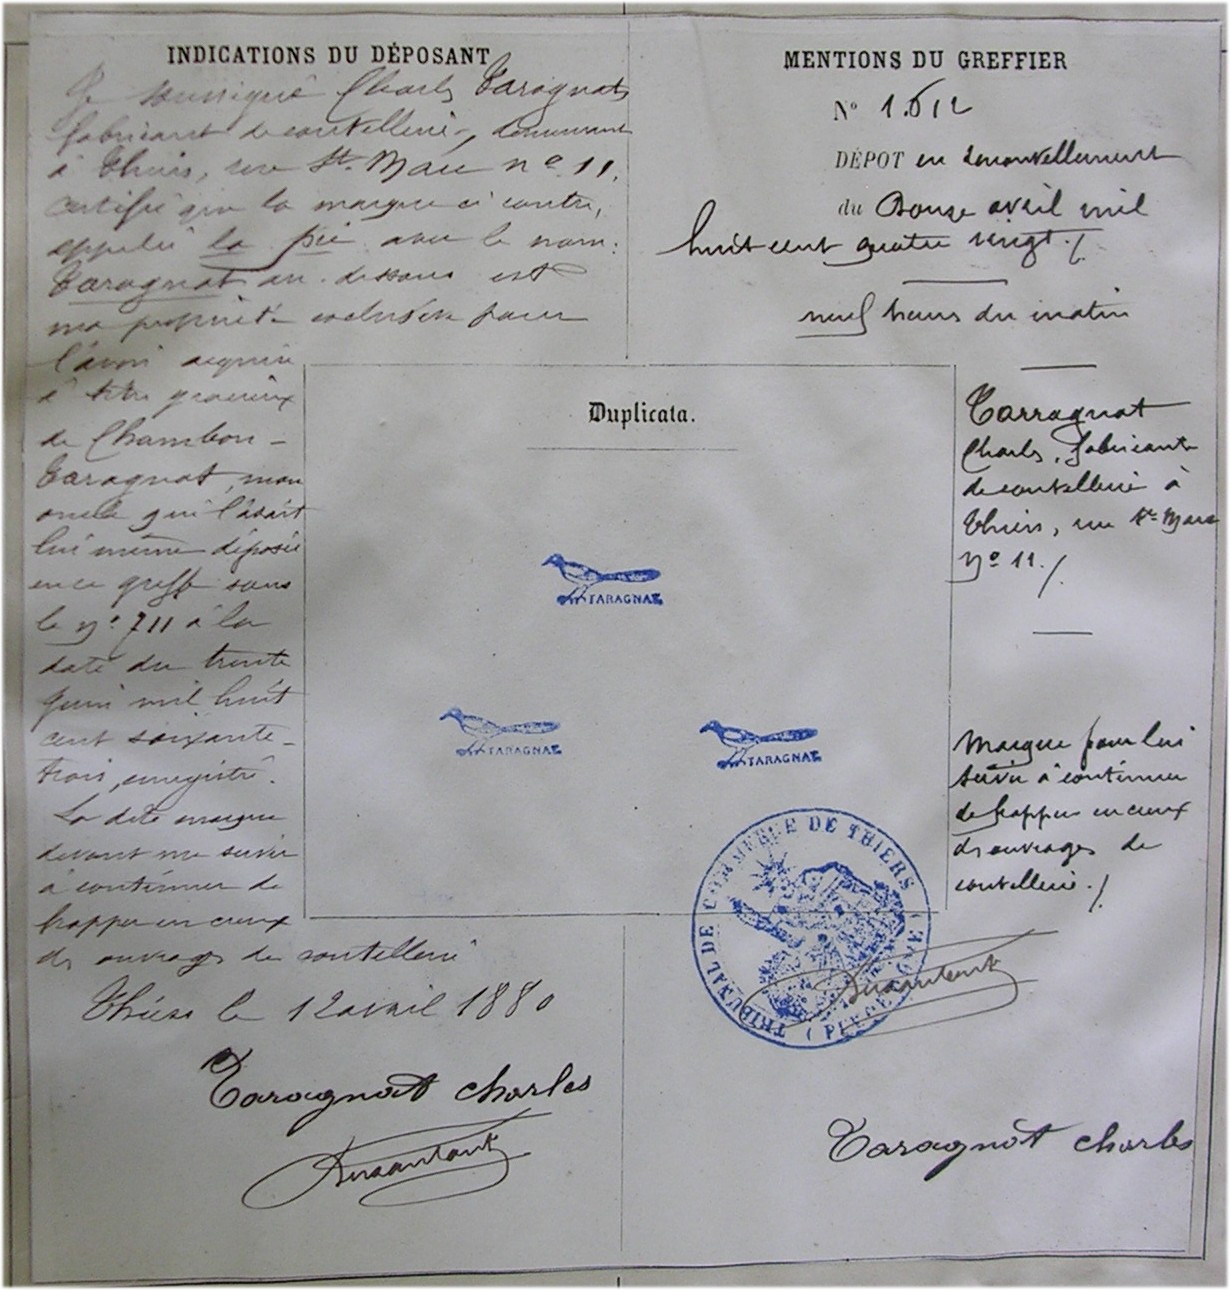 INDICATIONS DU DÉPOSANT
Je soussigné Charles Taragnat
fabricant de coutellerie, demeurant
à Thiers, rue St. Marc nº 11,
certifie que la marque ci contre,
appelée la pie avec le nom
Taragnat au-dessous est
ma propriété exclusive pour
l'avoir acquise
à titre gracieux
de Chambon-
Taragnat, mon
oncle qui l'avait
lui même déposée
en ce greffe sous
le nº 711 à la
date du trente
juin mil huit
cent soixante-
trois, enregistré.
La dite marque
devant me servir
à continuer de
frapper en creux
des ouvrages de coutellerie
Thiers le 12 avril 1880
Taragnat Charles
MENTIONS DU GREFFIER
Nº
DÉPOT en renouvellement
du Douze avril mil
huit cent quatre vingt./.
neuf heures du matin
Tarragnat
Charles, fabricant
de coutellerie à
Thiers, rue St Marc
Nº 11./.
Marque pour lui
servir à continuer
de frapper en creux
des ouvrages de
coutellerie./.
Taragnat Charles
Duplicata.
TARAGNAT
TARAGNAT
TARAGNAT
TRIBUNAL DE COMMERCE DE THIERS